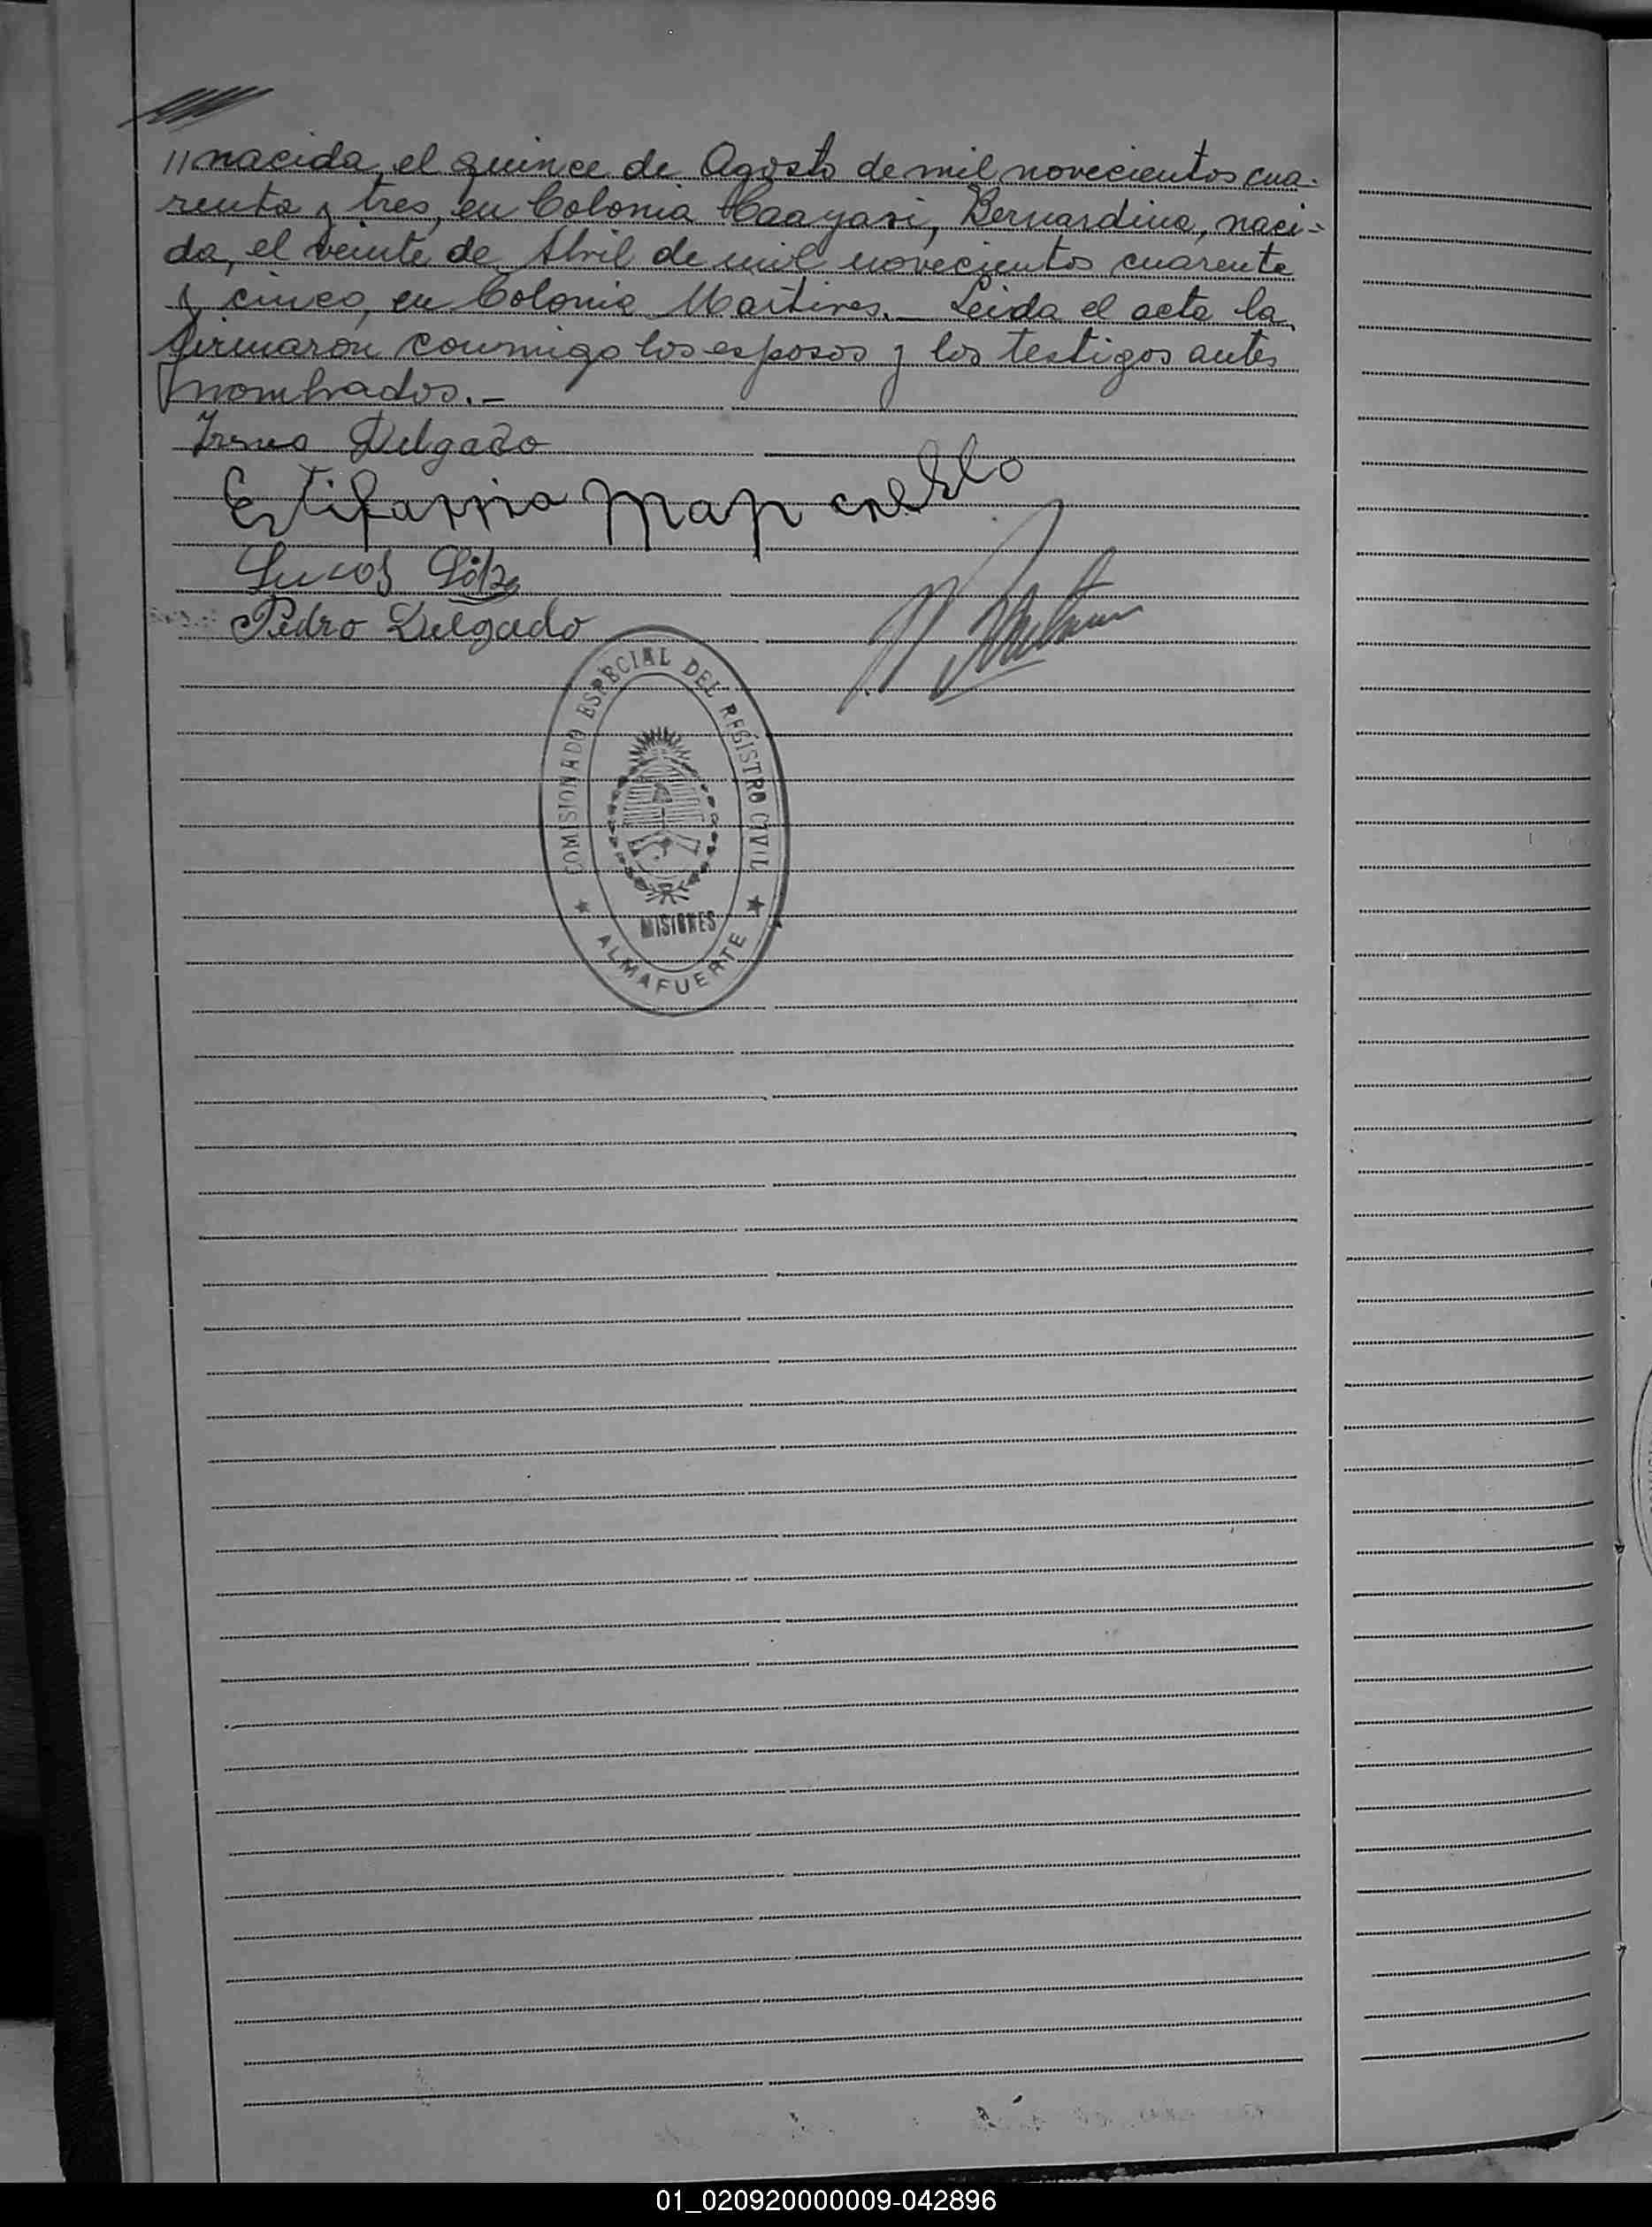 //nacida, el quince de Agosto de mil novecientos cua-
renta y tres, en Colonia Caayari, Bernardina, naci-
da, el veinte de Abril de mil novecientos cuarenta
y cinco, en Colonia Martires._ Leida el acta la
firmaron conmigo los esposos y los testigos antes
nombrados.-
Delgado
Lucas
Pedro Delgado
COMISIONADO ESPECIAL DEL REGISTRO CIVIL
MISIONES
ALMAFUERTE
01_020920000009-042896